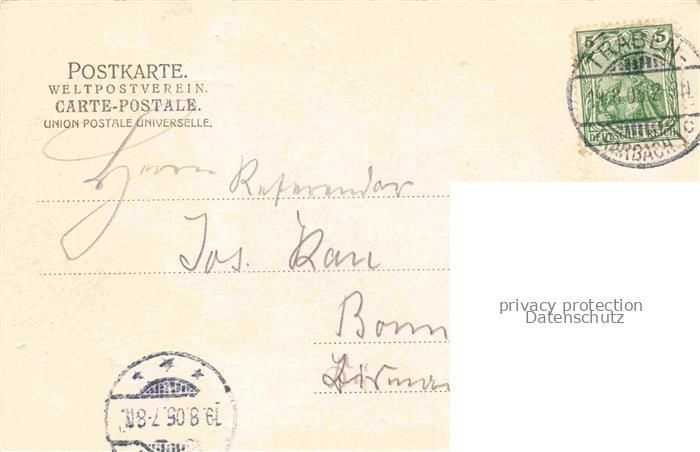 POSTKARTE.
WELTPOSTVEREIN.
CARTE-POSTALE.
UNION POSTALE UNIVERSELLE.
5 5
DEUTSCHES REICH
TRABEN-
TRARBACH
Herrn Referendar
Jos. Kau
Bonn
privacy protection
Datenschutz
19.8.05.7-8N.